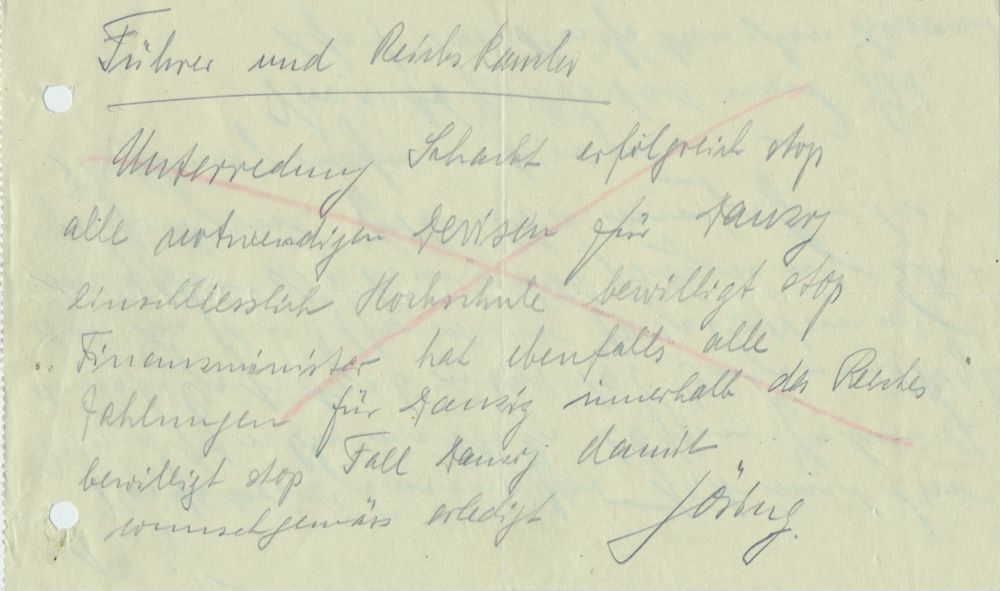 Führer und Reichskanzler
Unterredung Schacht erfolgreich stop
alle notwendigen Devisen für Danzig
einschliesslich Hochschule bewilligt stop
Finanzminister hat ebenfalls alle
Zahlungen für Danzig innerhalb des Reiches
bewilligt stop Fall Danzig damit
wunschgemäss erledigt Göring.